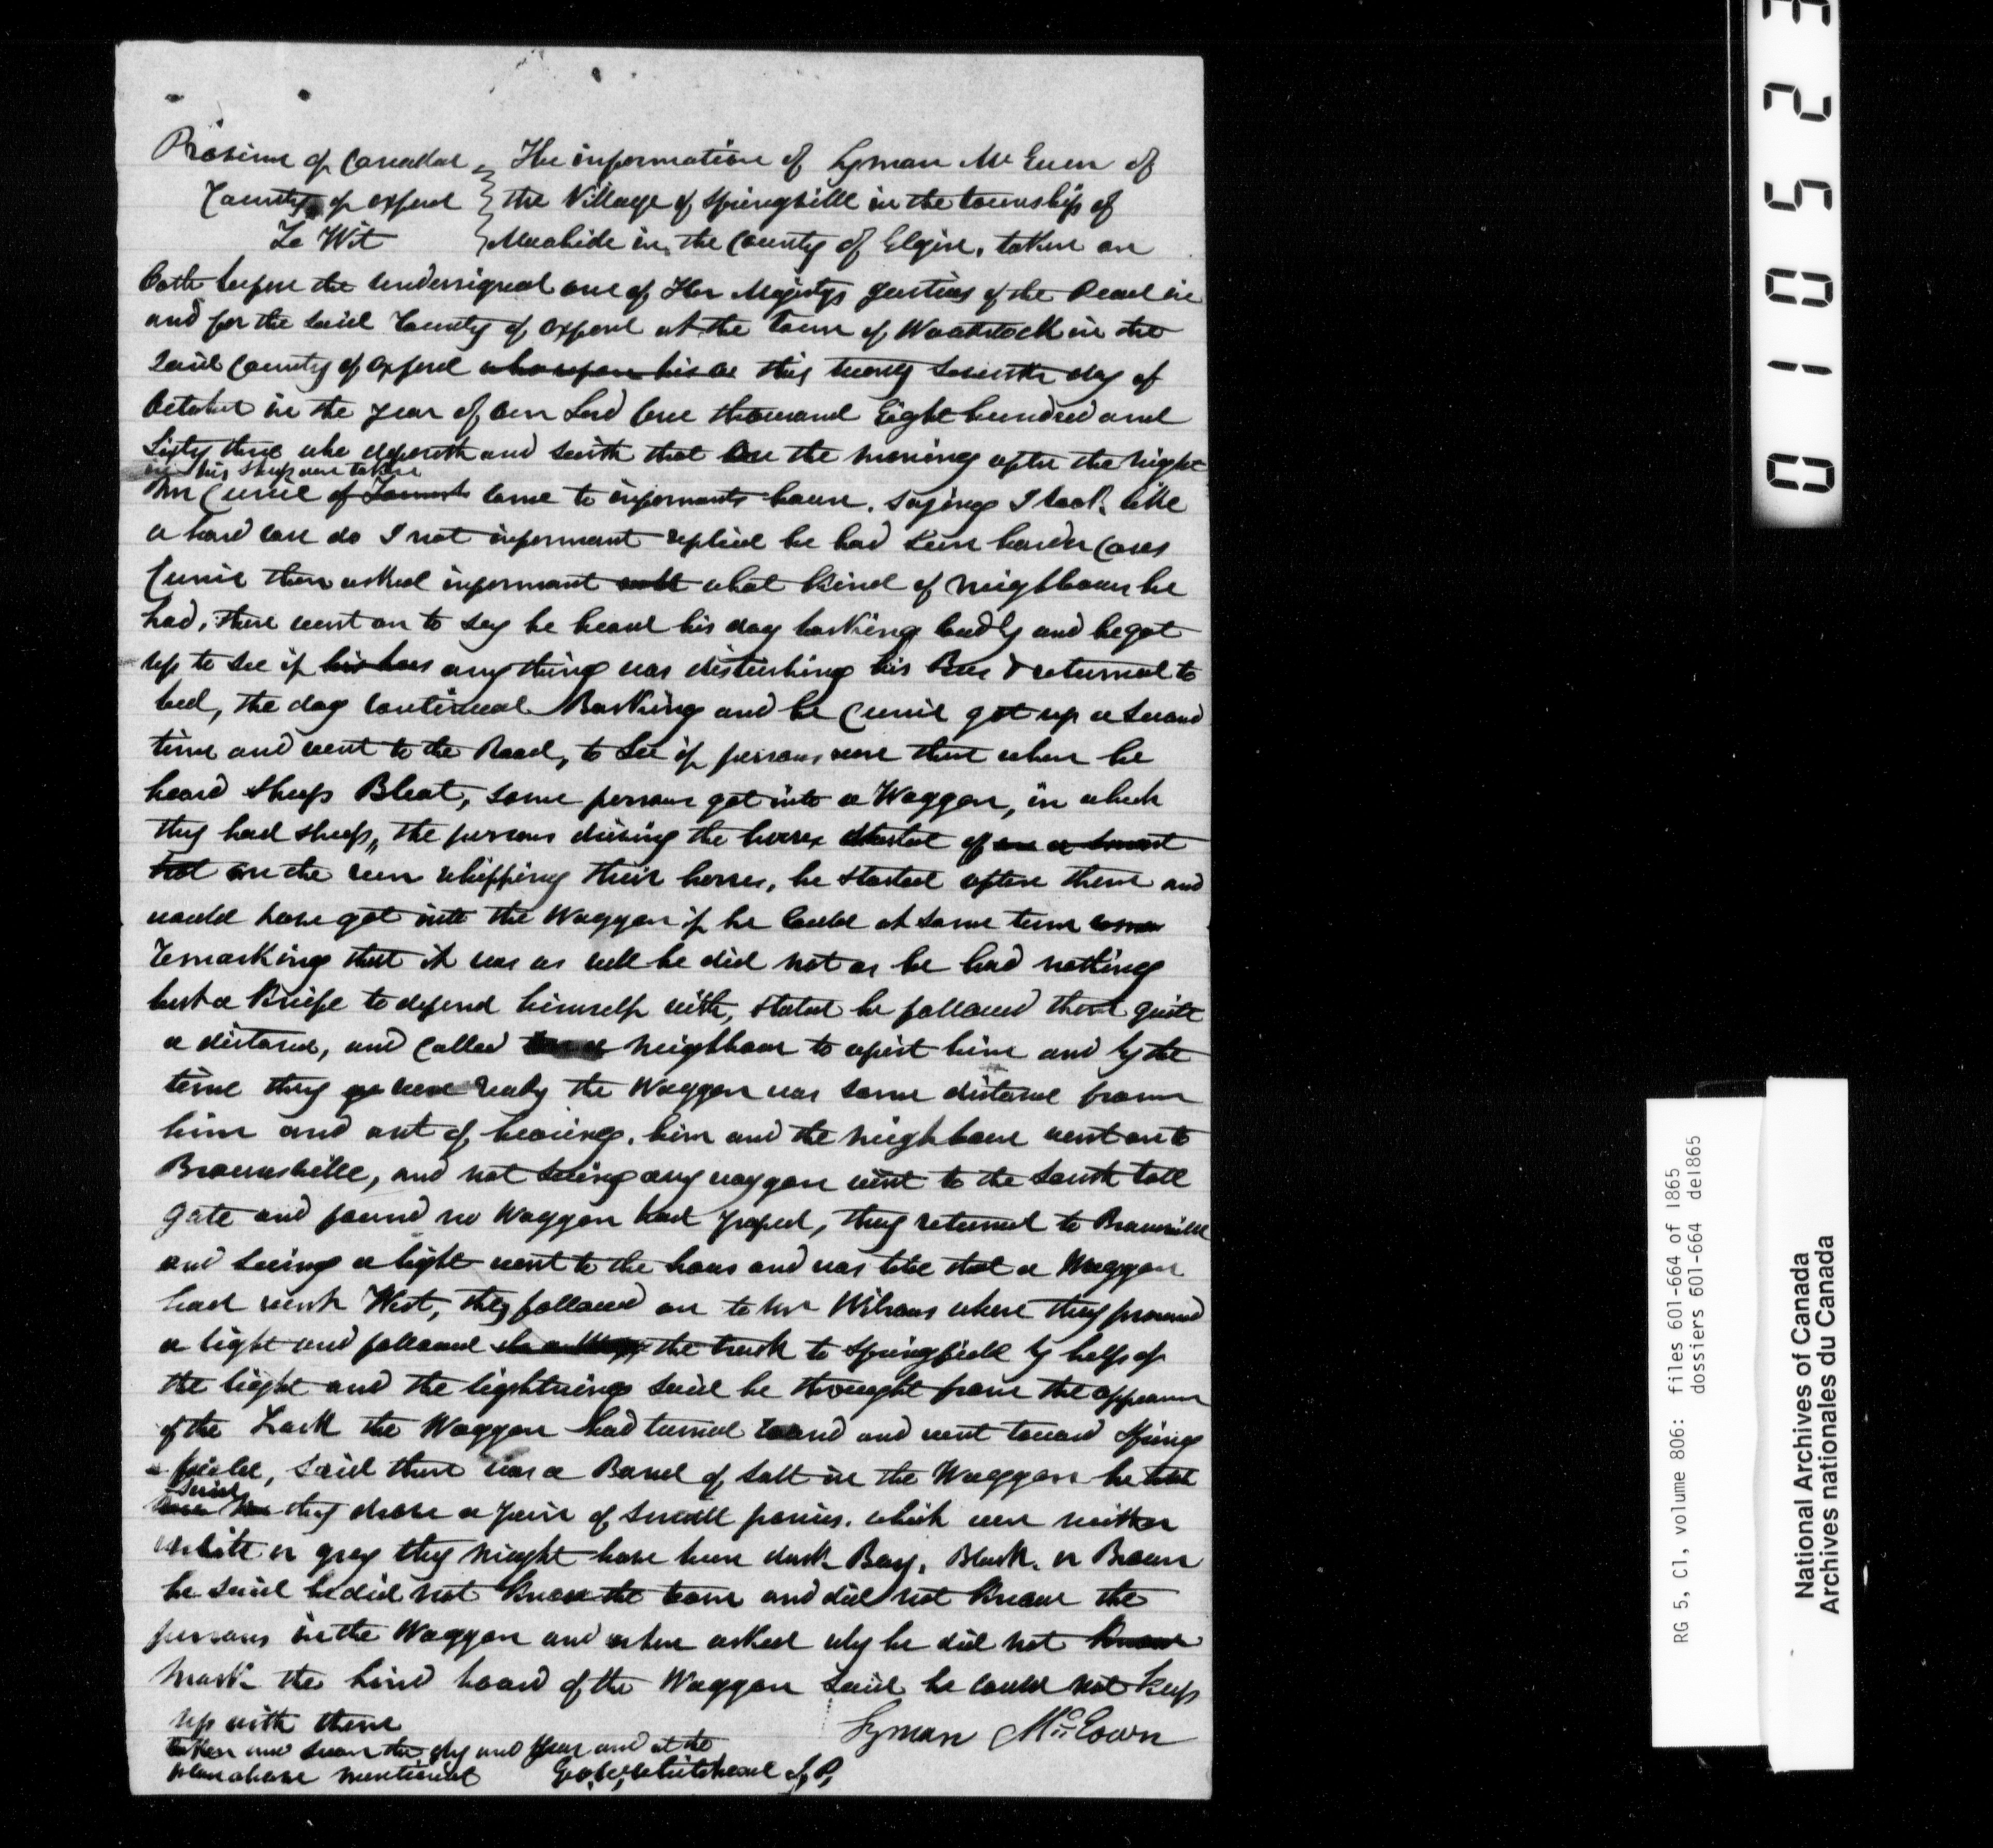 Province of Canada } The information of Lyman McEuen of
County of Oxford } the Village of Springville in the township of
To Wit } Malahide in the County of Elgin, taken on
Oath before the undersigned one of Her Majestys Justices of the Peace in
and for the said County of Oxford at the Town of Woodstock in the
said County of Oxford who upon his oa this twenty seventh day of
October in the year of our Lord One thousand Eight hundred and
Sixty three who deposeth and saith that on the morning after the night
his sheep were taken
Mr Cunie of come to informants house. saying I look like
a hard case do I not informant replied he had seen harder Cases
Cunie then asked informant what kind of neighbours he
had, then went on to say he heard his dog barking loudly and he got
up to see if any thing was disturbing his Bees & returned to
bed, the dog continued Barking and he Cunie got up a second
time and went to the Road, to see if persons were there when he
heard sheep Bleat, some persons got into a Waggon, in which
they had sheep, the persons driving the horses started of on a smart
trot on the run whipping their horses, he started after them and
would have got into the Waggon if he could at same time
remarking that it was as well he did not as he had nothing
but a Knife to defend himself with, stated he followed them quite
a distance, and called neighbour to assist him and by the
time they were ready the Waggon was some distance from
him and out of hearing. him and the neighbour went on to
Brownsville, and not seeing any waggon went to the South toll
gate and found no Waggon had passed, they returned to Brownsville
and seeing a light went to the house and was told that a Waggon
had went West, they followed on to Mr Wilsons where they procured
a light and followed the track to Springfield by help of
the light and the lightning said he thought from the appearance
of the Track the Waggon had turned round and went toward Spring
field, said there was a Barrel of salt in the Waggon he
said
they drove a pair of small ponies. which were neither
white or grey they might have been dark Bay, Black, or Brown
he said he did not Know the team and did not Know the
persons in the Waggon and when asked why he did not Know
mark the hind board of the Waggon said he could not keep
up with them
Lyman McEown
taken and sworn the day and year and at the
place above mentioned Geo. W. Whitehead J.P.
0 1 0 5 2 3
RG 5, C1, volume 806: files 601-664 of 1865
dossiers 601-664 de1865
National Archives of Canada
Archives nationales du Canada